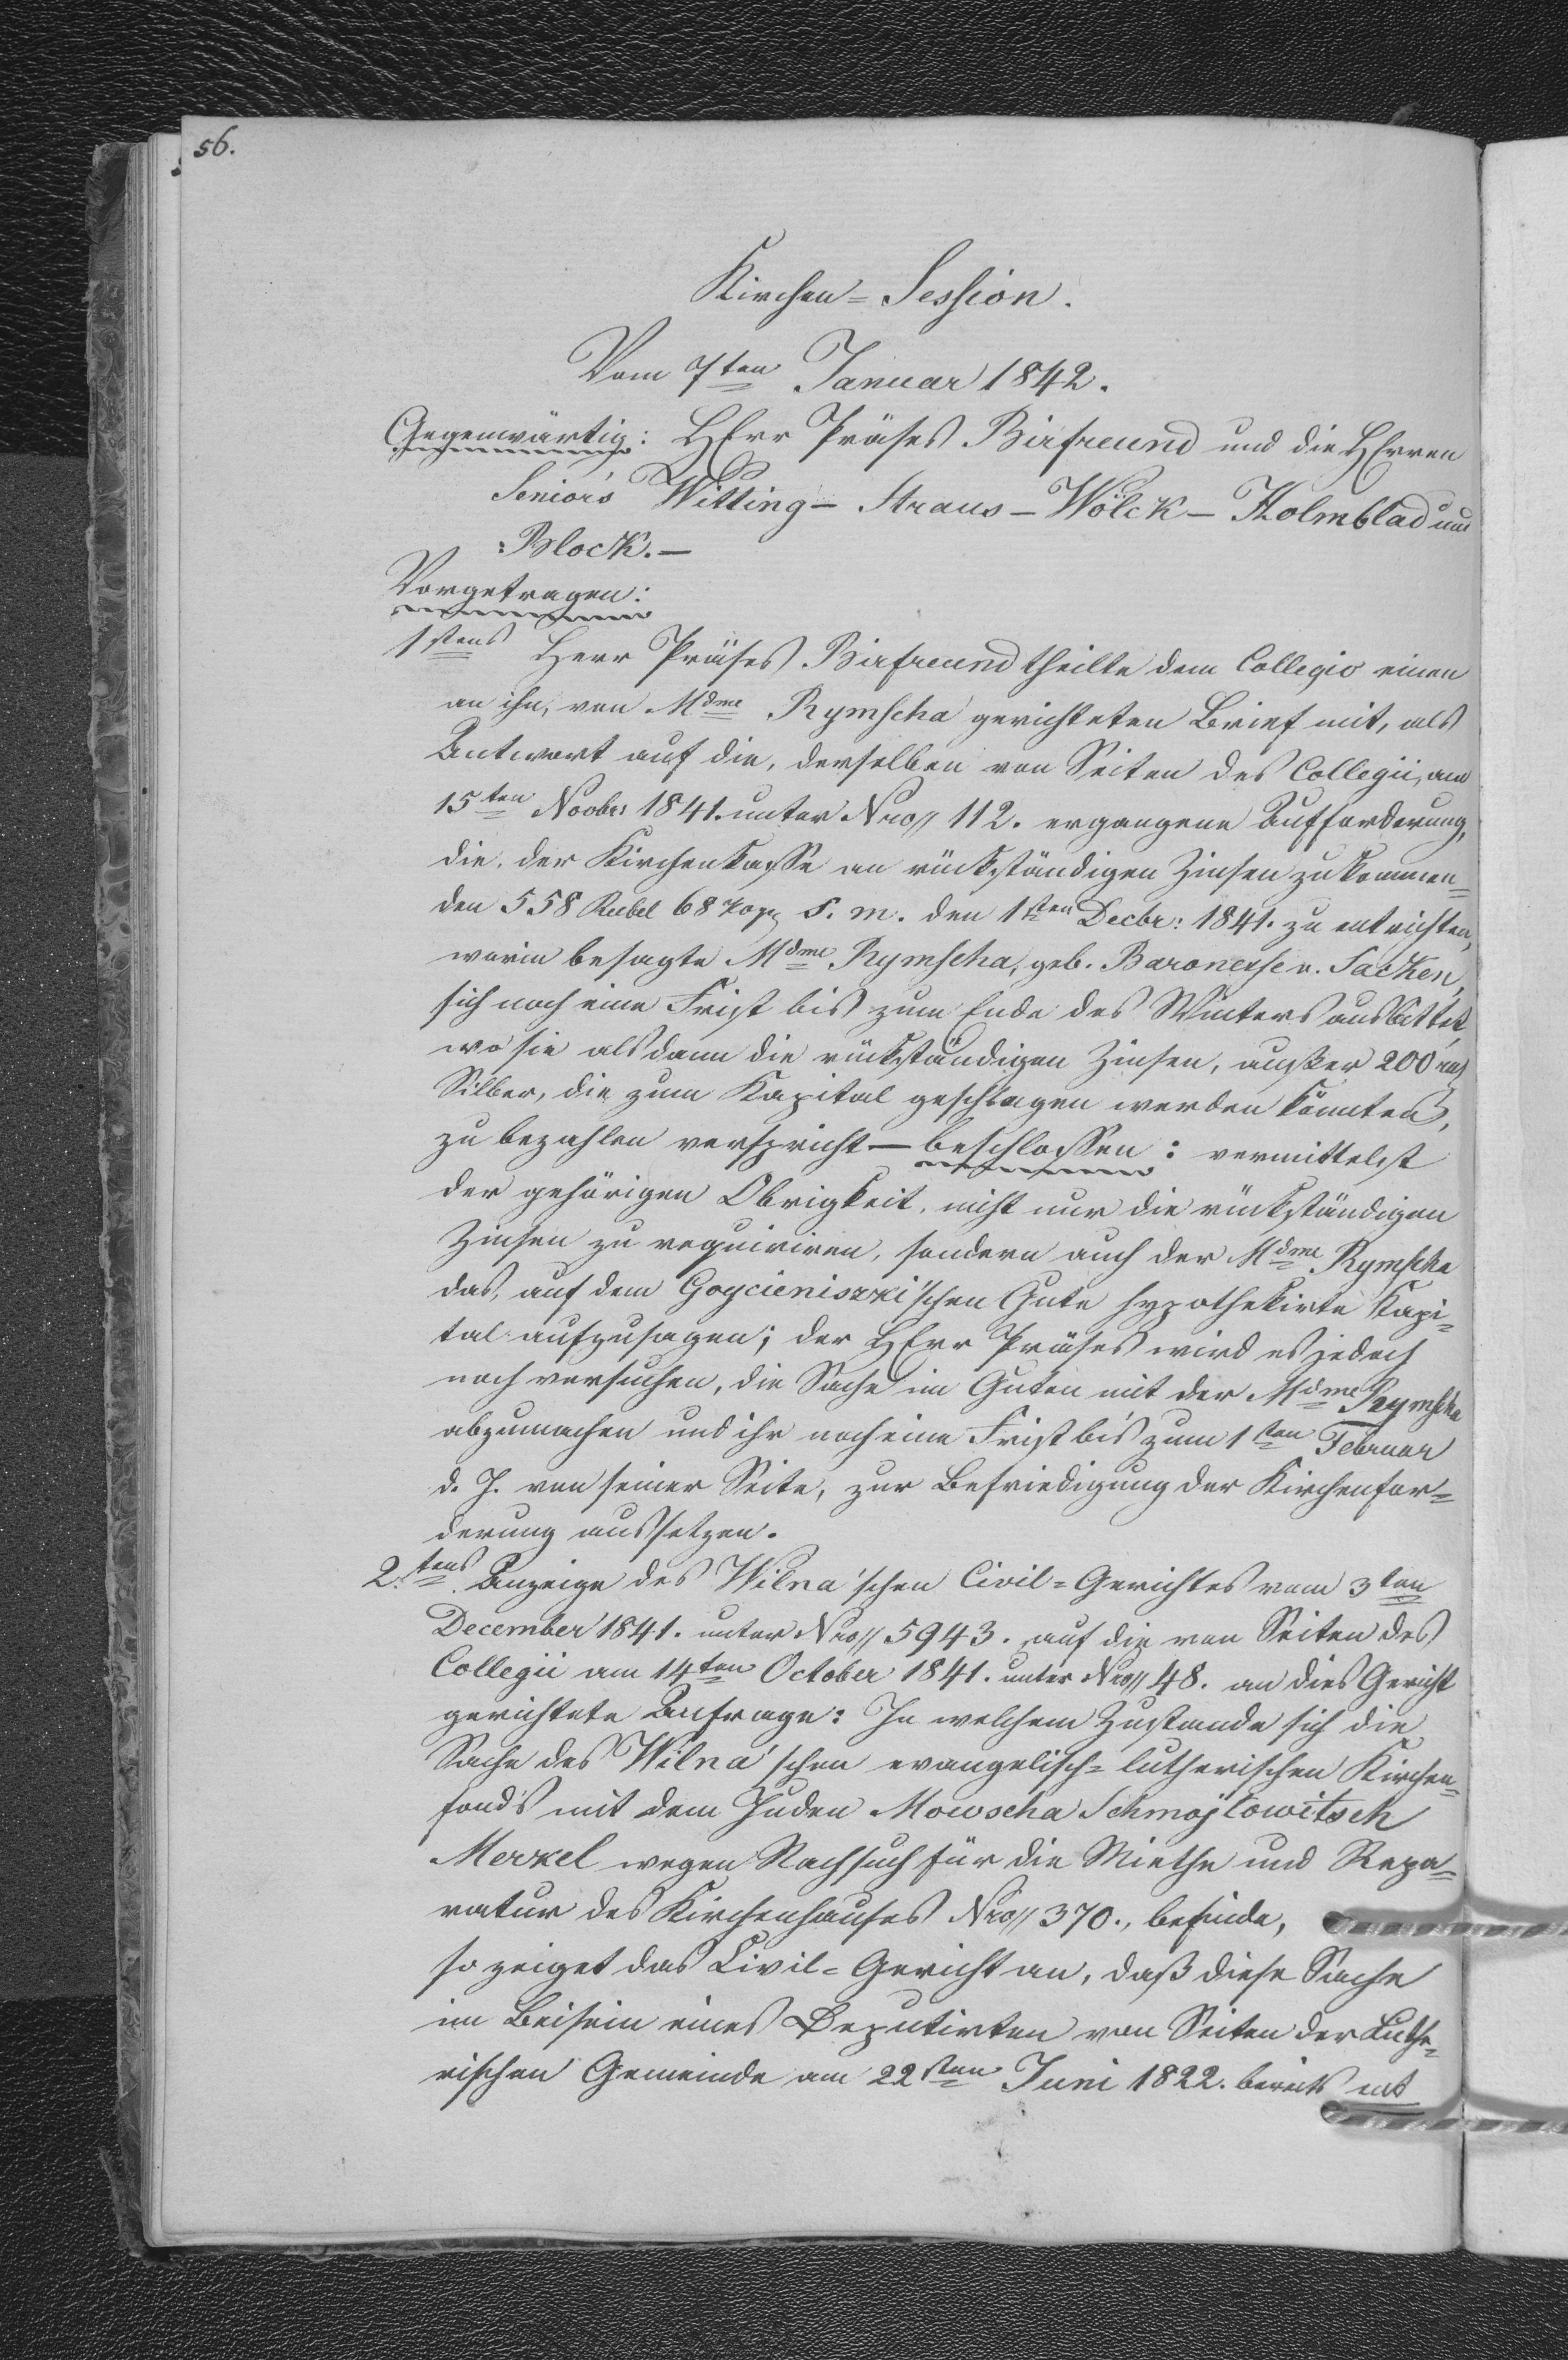 56.
Kirchen=Session.
Vom 7ten Januar 1842.
Gegenwärtig: HErr Präses Birfreund und die HErren
Senior's Witting – Straus – Wölck – Holmblad und
Block. –
Vorgetragen:
1stens Herr Präses Birfreund theilte dem Collegio einen
an ihn, von Mdme Rymscha gerichteten Brief mit, als
Antwort auf die, derselben von Seiten des Collegii, am
15ten Novbr: 1841. unter Nro// 112. ergangene Aufforderung,
die, der Kirchenkasse an rückständigen Zinsen zukommen=
den 558 Rubel 68 Kop. S. m. den 1sten Decbr: 1841. zu entrichten,
worin besagte Mdme Rymscha, geb. Baronesse v. Sacken,
sich noch eine Frist bis zum Ende des Winters ausbittet,
wo sie alsdann die rückständigen Zinsen, außer 200
Silber, die zum Kapital geschlagen werden könnten,
zu bezahlen verspricht – beschlossen: vermittelst
der gehörigen Obrigkeit, nicht nur die rückständigen
Zinsen zu requiriren, sondern auch der Mdme Rymscha
das, auf dem Goycieniszki'schen Gute hypothekirte Kapi=
tal aufzusagen; der HErr Präses wird es jedoch
noch versuchen, die Sache im Guten mit der Mdme Rymscha
abzumachen und ihr noch eine Frist bis zum 1sten Februar
d. J. von seiner Seite, zur Befriedigung der Kirchenfor=
derung aussetzen.
2.tens Anzeige des Wilna'schen Civil=Gerichtes vom 3ten
December 1841. unter Nro// 5943. auf die von Seiten des
Collegii am 14ten October 1841. unter Nro// 48. an dies Gericht
gerichtete Anfrage: In welchem Zustande sich die
Sache des Wilna'schen evangelisch=lutherischen Kirchen=
fond's mit dem Juden Mowscha Schmojlowitsch
Merkel wegen Nachsuch für die Miethe und Repa=
ratur des Kirchenhauses Nro// 370., befinde,
so zeiget das Civil=Gericht an, daß diese Sache
im Beisein eines Deputirten von Seiten der Luthe=
rischen Gemeinde am 22sten Juni 1822. bereits ent